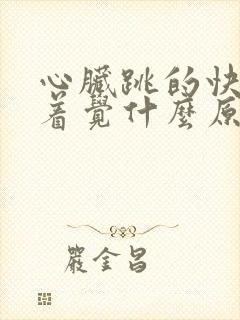 心臟跳的快
着覺什麼原
嚴金昌